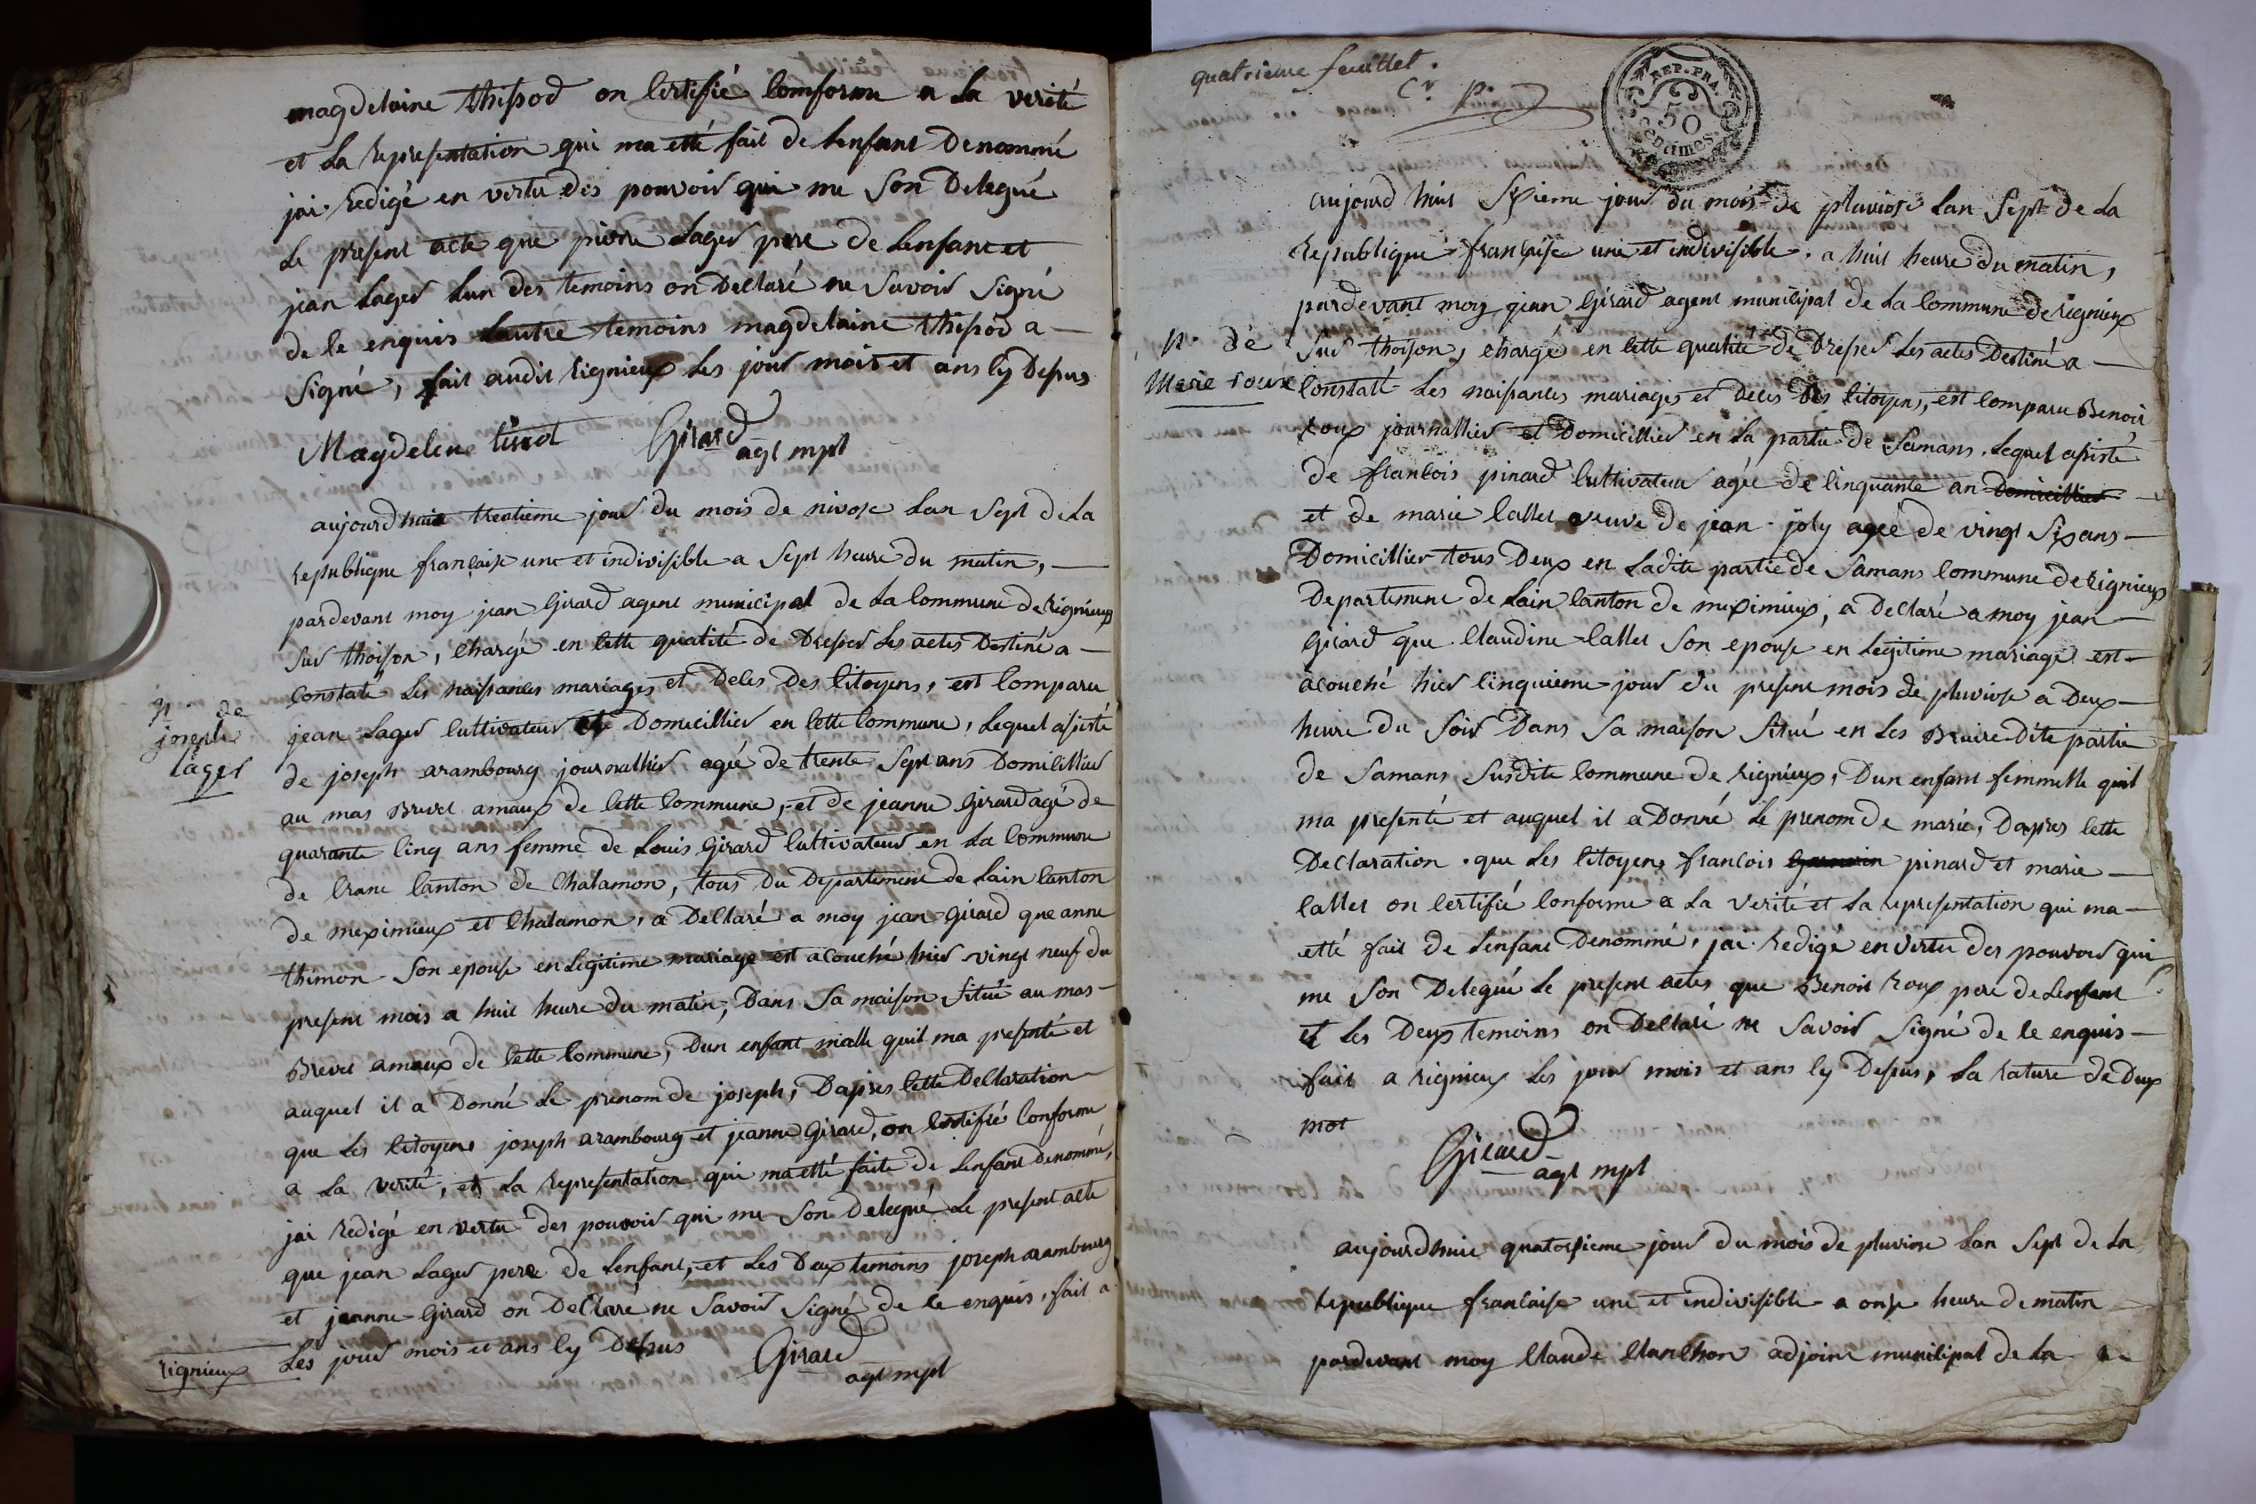 magdelaine thissod on Certifié Comforme a la verité
et La Representation qui ma etté fait de Lenfant Denommé
jai Redigé en vertu des pouvoir qui me son Delegué
Le present acte que pierre Lager pere de Lenfant et
jean Lager Lun des temoins on Declaré ne Savoir Signé
de le enquis Lautre temoins magdelaine thissod a
Signé, fait audit Rignieux les jour mois et ans Cy Depus
Magdelene tissot Girard
agt mpl
aujourdhuit trentieme jour du mois de nivose Lan Sept de La
Republique française une et indivisible a Sept heure du matin,
pardevant moy jean Girard agent municipal de La Commune de Rignieux
Sur thoison, Chargé en Cette qualité de Dresser Les actes Destiné a
Constaté Les naissances mariages et Deces Des Citoyens, est Comparu
n. de
joseph
Lager
jean Lager Cultivateur et Domicillier en Cette Commune, Lequel assisté
de joseph arambourg journallier agée de trente Sept ans Domicillier
au mas Brevet amaux de Cette Commune, et de jeanne Girard agé de
quarante Cinq ans femme de Louis Girard Cultivateur en La Commune
de Crane Canton de Chalamon, tous du Departement de Lain Canton
de meximieux et Chalamon, a Declaré a moy jean Girard que anne
thimon Son epouse en Legitime mariage est acouché hier vingt neuf du
present mois a huit heure du matin, Dans Sa maison Situé au mas
Brevet amaux de Cette Commune, Dun enfant malle quil ma presenté et
auquel il a Donné Le prenom de joseph, Dapres Cette Declaration
que Les Citoyens joseph arambourg et jeanne Girard, on Certifié Conforme
a La verité, et La Representation qui ma etté faite de Lenfant denommé,
jai Redigé en vertu des pouvoir qui me Son Delegué Le present acte
que jean Lager pere de Lenfant, et Les Deux temoins joseph arambourg
et jeanne Girard on Declaré ne Savoir Signé de le enquis, fait a
Rignieux Les jour mois et ans Cy Depus Girard
agt mpl
quatrieme feuillet.
REP. FRA.
50
centimes
aujourd huit Sixieme jour du mois de pluviose Lan Sept de La
Republique française une et indivisible. a huit heure du matin,
pardevant moy jean Girard agent municipal de La Commune de Rignieux
n. de
Marie roux
Sur thoison, chargé en Cette qualité de Dresser Les actes Destiné a
Constaté Les naissances mariages et Deces Des Citoyens, est Comparu Benoit
Roux journallier et Domicillier en La partie de Samans, Lequel assisté
de francois pinard Cultivateur agée de Cinquante an Domicillier
et de marie Callet veuve de jean joly agée de vingt Six ans
Domicillier tous Deux en Ladite partie de Samans Commune de Rignieux
Departement de Lain Canton de meximieux, a Declaré a moy jean
Girard que Claudine Callet Son epouse en Legitime mariage est
acouché hier Cinquieme jour du present mois de pluviose a Deux
heure du Soir Dans Sa maison Situé en Les Bruire Dite partie
de Samans Susdite Commune de Rignieux, Dun enfant femmelle quil
ma presenté et auquel il a Donné Le prenom de marie, Dapres Cette
Declaration, que Les Citoyens francois pinard et marie
Callet on Certifié Conforme a La verité et La representation qui ma
etté fait de Lenfant denommé, jai Redigé en vertu des pouvoir qui
me Son Delegué Le present actes que Benoit Roux pere de Lenfant
et Les Deux temoins on Declaré ne Savoir Signé de le enquis
fait a Rignieux Les jour mois et ans Cy Depus, La Rature de Deux
mot
Girard
agt mpl
aujourdhuit quatorsieme jour du mois de pluviose Lan Sept de La
Republique francaise une et indivisible a onze heure de matin
pardevant moy Claude Clanchon adjoint municipal de La